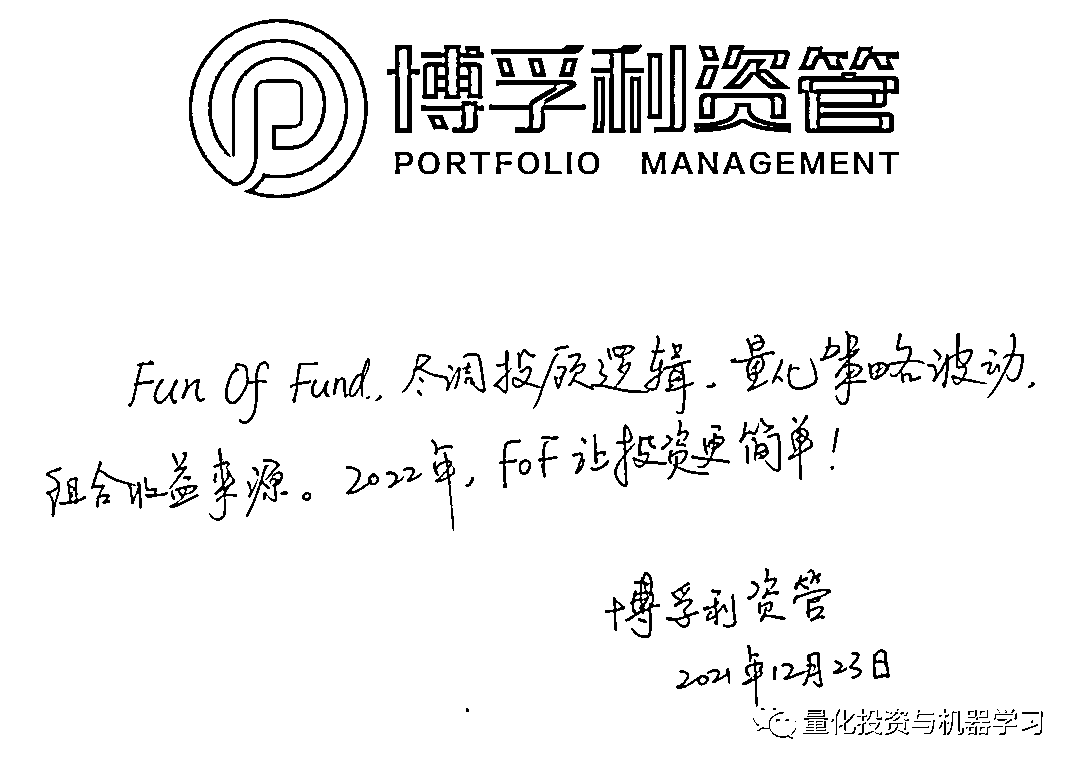 博孚利资管
PORTFOLIO MANAGEMENT
Fun Of Fund., 尽调投顾逻辑、量化策略波动、
组合收益来源。2022年, FoF让投资更简单!
博孚利资管
2021年12月23日
量化投资与机器学习